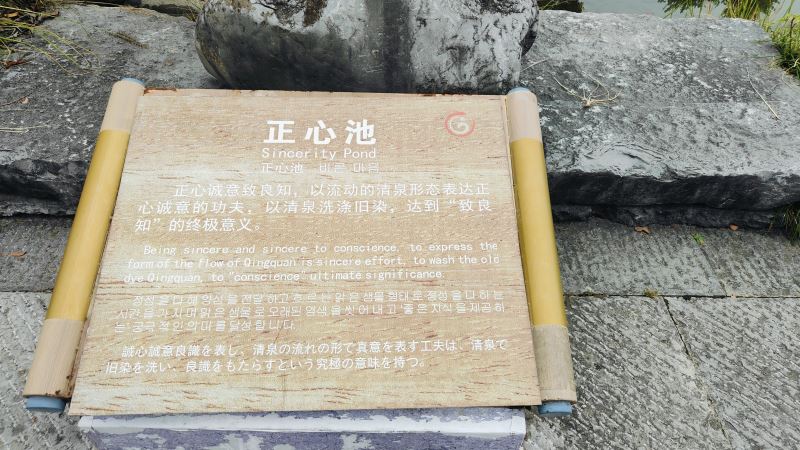 正心池
Sincerity Pond
正心池 바른 마음
正心诚意致良知，以流动的清泉形态表达正
心诚意的功夫，以清泉洗涤旧染，达到“致良
知”的终极意义。
Being sincere and sincere to conscience, to express the
form of the flow of Qingquan is sincere effort, to wash the old
dye Qingquan, to "conscience" ultimate significance.
정성을 다해 양심을 전달하고 흐르는 맑은 샘물 형태로 정성을 다하는
시간을 가지며 맑은 샘물로 오래된 염색을 씻어내고 '좋은 지식을 제공하
는' 궁극적인 의미를 달성합니다.
誠心誠意良識を表し、清泉の流れの形で真意を表す工夫は、清泉で
旧染を洗い、良識をもたらすという究極の意味を持つ。